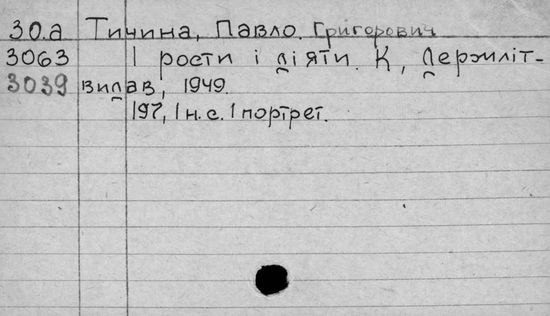 30.а Тичина, Павло Григорович
3063 І рости і діяти. К, Держліт-
3039 видав, 1949.
197, 1 н.с. 1 портрет.